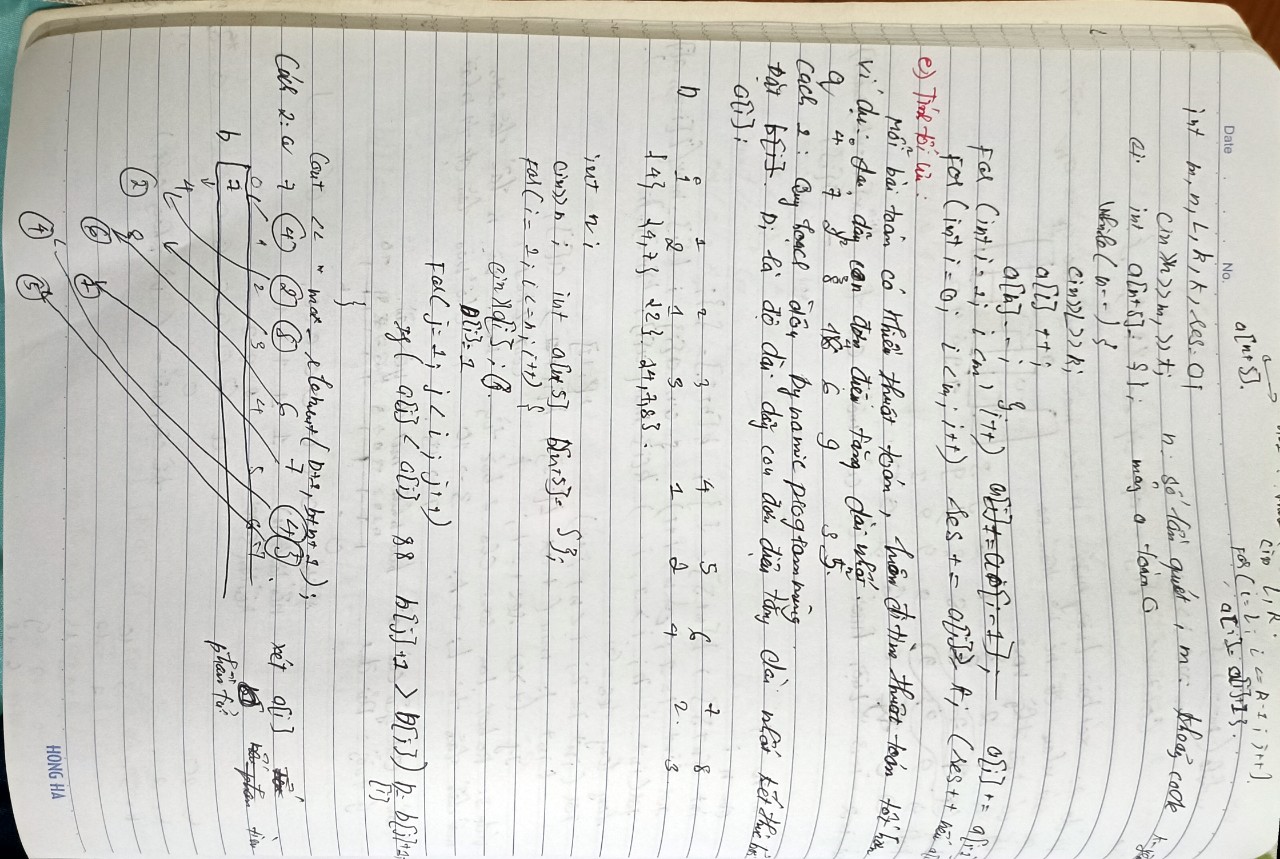 cin L, R.
a[n+5].
for (i=L; i <= R-1; j++).
a[i]= a[i]+1}.
Date No.
int m, n, L, k, k, res=0;
cin >>n >>m, >>t; n: số lần quét, m: khoảng cook
int a[n+5]= {}; mảng a toàn 0
while( n-- ) {
cin>>L>>R;
a[l] ++;
a[k]--; }.
For (int i=1; i<m; i++) a[i] += a[i-1]; a[i] += a[i-1
For (int i=0; i<m; i++) res += a[i]≥ k; (res++ nếu a[
e) Tính tối ưu:
Mỗi bài toán có nhiều thuật toán, luôn đi tìm thuật toán tốt hơn
ví dụ: dãy con đơn điệu tăng dài nhất.
9 4 7 2 8 6 9 3 5
Cách 1: Quy hoạch động Dynamic programming
Đặt b[i]. Di là độ dài dãy con đơn điệu tăng dài nhất kết thúc bởi
a[i];
0 1 2 3 4 5 6 7 8
D 1 2 1 3 1 2 4 2. 3
{4} {4,7} {2}. {4,7,8}.
int n;
cin>>n; int a[n+5] b[n+5]= {};
For(i= 1; i<=n; i++) {
cin>>a[i];
b[i]=1
For( j=1; j<i; j++)
if( a[j] < a[i] && b[j]+1 > b[i]) b[i]= b[j]+1;
}
Cout << *max_element( b+1, b+n+1);
Cách 2: a 7 4 2 8 6 7 4 5. xét a[i]
0 1 2 3 4 5 6 7 phần tiên
b 7 phần tử
4
2 8
6 7
4 5
HONG HA